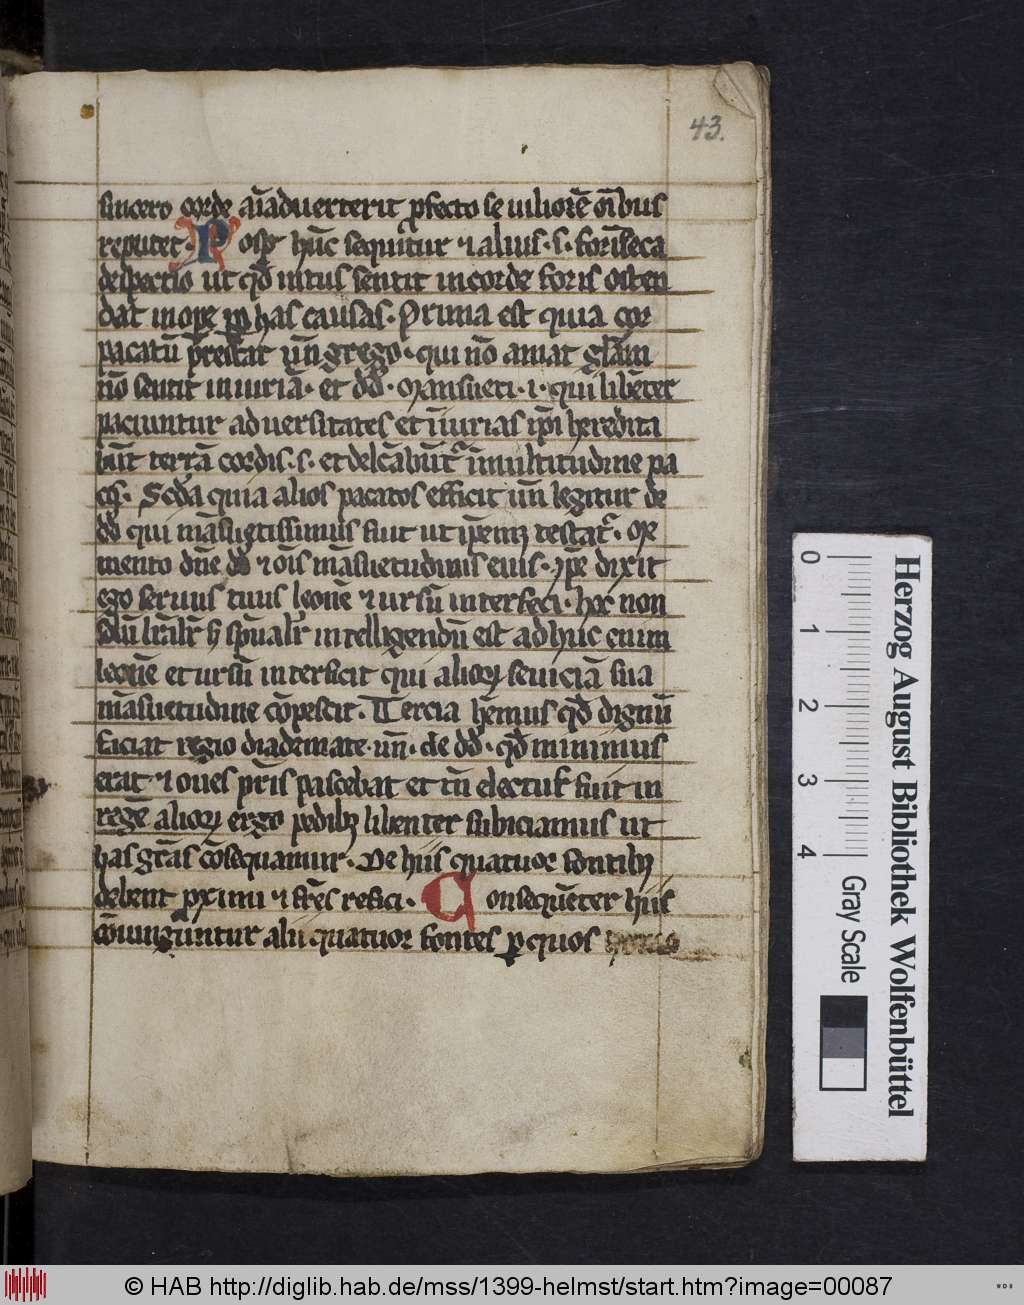 43.
sincero corde aīaduerterit ꝑfecto se uiliorē oībus
reputet. Posͭ hūc sequitur ⁊ alius .s. forīseca
despectio ut qđ intus sentit in corde foris osten
dat in oꝑe ꝓpͭ has causas. Prima est quia cor
pacatū p̄restat. Vn̄ grego. qui nō amat glām
nō sentit iniuriā. et dd̄. Mansueti .i. qui libēter
paciuntur aduersitates et iniurias ip̄i heredita
būt terrā cordis .s. et delcābūtͬ ī multitudine pa
cꝭ. Scđa quia alios pacatos efficit un̄ legitur de
dd̄ qui māsuetissimus fuit ut ip̄emꝫ testatͬ. Me
mento dn̄e dd̄ ⁊ oīs māsuetudinis eius. ip̄e dixit
ego seruus tuus leonē ⁊ ursū interfeci. hoc non
solū lr̄alr̄ ꜧ sp̄ualr̄ intelligendū est adhuc enim
leonē et ursū interficit qui alioꝝ seuiciā sua
māsuetudine cōpescit. Tercia hēmus qđ dignū
faciat regio diademate. un̄ de dd̄. qđ minimus
erat ⁊ oues pr̄is pascebat et tn̄ electus fuit in
regē alioꝝ ergo pedibꝫ libenter subiciamus ut
has grās cōsequamur. De hiis quatuor fontibꝫ
debent ꝓximi ⁊ fr̄es refici. Consequēter hiis
cōiunguntur alii quatuor fontes ꝑ quos
0 1 2 3 4
Gray Scale
Herzog August Bibliothek Wolfenbüttel
© HAB http://diglib.hab.de/mss/1399-helmst/start.htm?image=00087